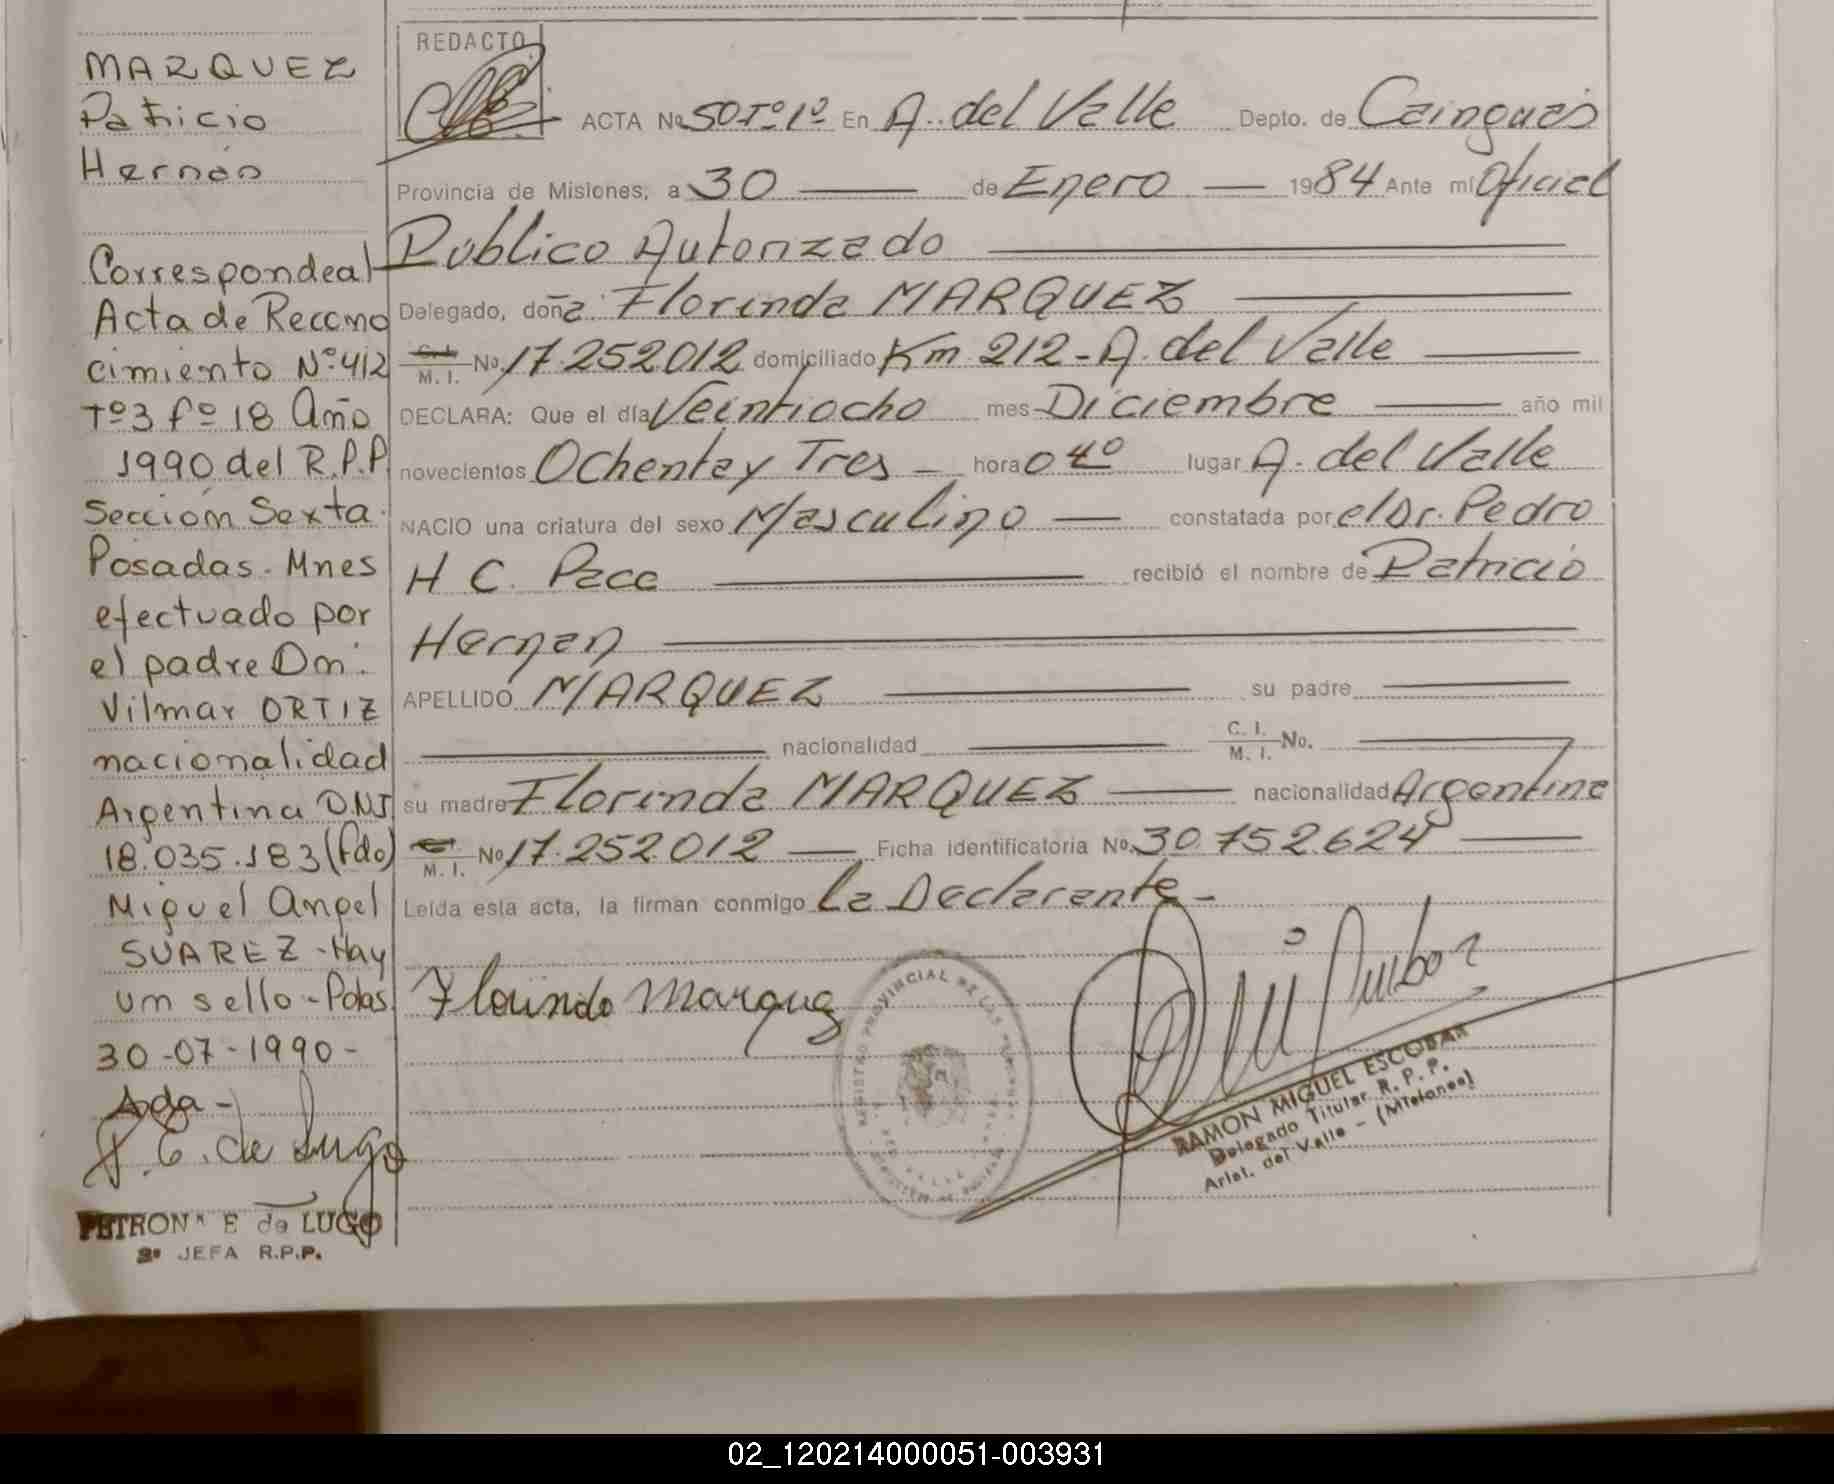 MARQUEZ
Patricio
Hernán
Correspondeal
Acta de Recono
cimiento Nº 412
Tº3 fº 18 Año
1990 del R.P.P
Sección Sexta.
Posadas. Mnes
efectuado por
el padre Dn.
Vilmar ORTIZ
nacionalidad
Argentina D.N.I
18.035.183 (fdo)
Miguel Angel
SUAREZ - Hay
un sello - Pdas.
30-07-1990-
E. de Lugo
PETRONA E de LUGO
2º JEFA R.P.P.
REDACTO
ACTA Nº 50 Tº 1º En A. del Valle Depto. de Cainguás
Provincia de Misiones, a 30 de Enero 1984 Ante mí Oficial
Público Autorizado
Delegado, doña Florinda MARQUEZ
C. I.
M. I. No. 17.252.012 domiciliado Km 212 - A. del Valle
DECLARA: Que el día Veintiocho mes Diciembre año mil
novecientos Ochenta y Tres hora 04º lugar A. del Valle
NACIO una criatura del sexo Masculino constatada por el Dr. Pedro
H C. Pace recibió el nombre de Patricio
Hernan
APELLIDO MARQUEZ su padre
nacionalidad C. I. M. I. No.
su madre Florinda MARQUEZ nacionalidad Argentina
M. I. No 17.252.012 Ficha identificatoria No. 30.752.624
Leída esta acta, la firman conmigo La Declarante -
Florinda Marquez
REGISTRO PROVINCIAL DE LAS
RAMON MIGUEL ESCOBAR
Delegado Titular R. P. P.
Arist. del Valle - (Misiones)
02_120214000051-003931